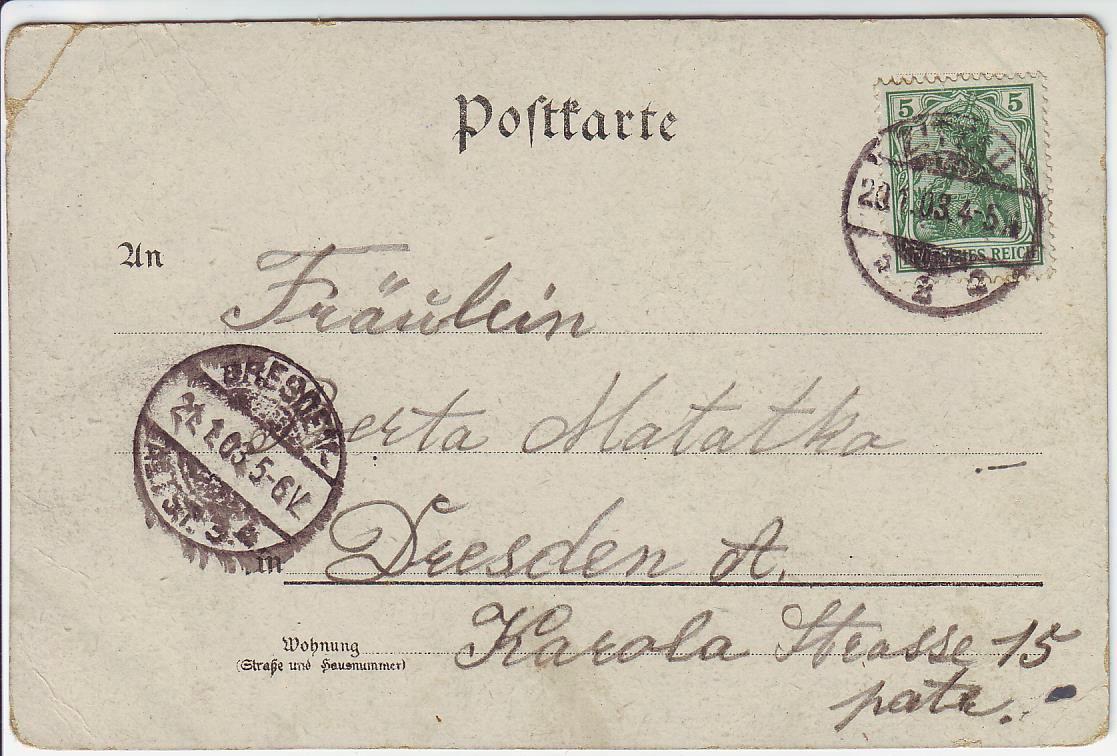 Postkarte
5 5
ZITTAU
1.03 4-5 N
2 a
DEUTSCHES REICH
An Fräulein
Berta Matatka
DRESDEN-
1.03 5-6 V
ALTST. 3.4
in Dresden A.
Wohnung Karola Strasse 15
(Straße und Hausnummer)